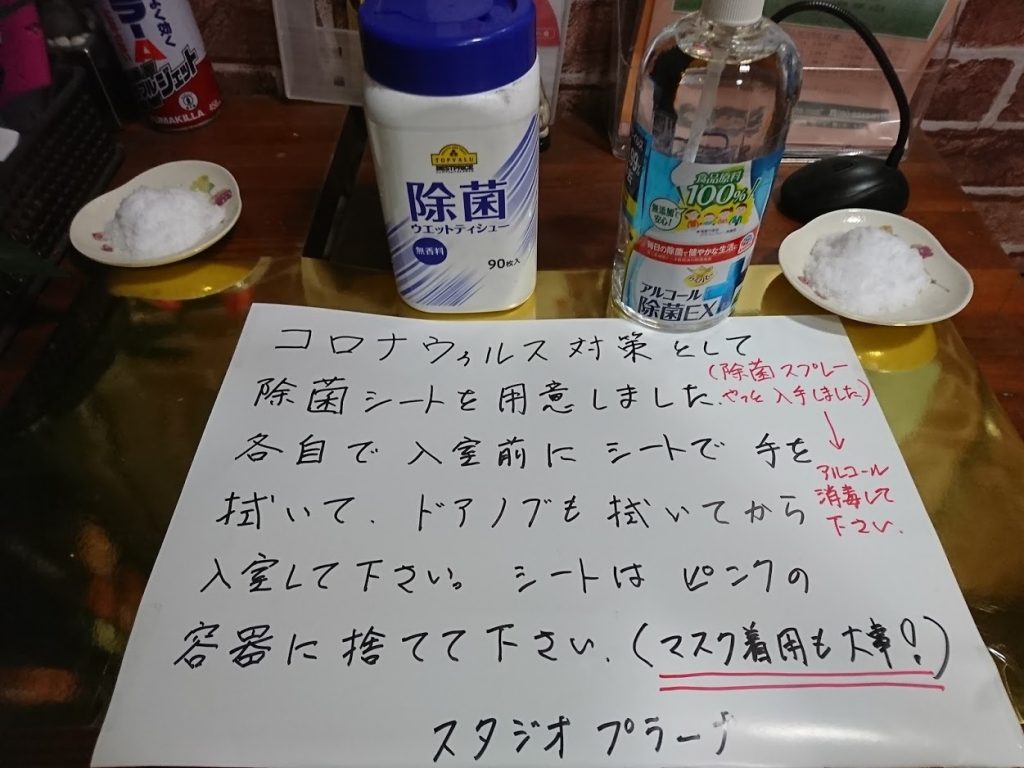 よく効く
ラーA
ルジェット
UMAKILLA
TOPVALU
BESTPRICE
除菌
ウエットティシュー
無香料
90枚入
食品原料
100%
無添加で
安心!
毎日の除菌で健やかな生活に
アルコール
除菌EX
コロナウィルス対策として
除菌シートを用意しました。
(除菌スプレー
やっと入手しました)
↓
アルコール
消毒して
下さい。
各自で入室前にシートで手を
拭いて、ドアノブも拭いてから
入室して下さい。シートはピンクの
容器に捨てて下さい。(マスク着用も大事!)
スタジオプラーナ